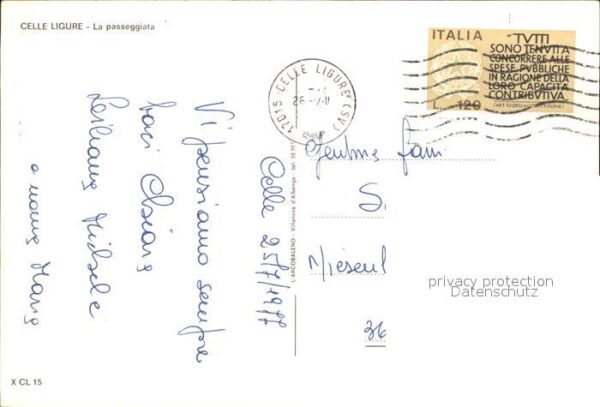 CELLE LIGURE - La passeggiata
ITALIA
"TVTTI
SONO TENVTI A
CONCORRERE ALLE
SPESE PVBBLICHE
IN RAGIONE DELLA
LORO CAPACITÀ
CONTRIBVTIVA
(ART. 53 DELLA COSTITUZIONE)
L. 120
17015 CELLE LIGURE (SV)
Celle 25/7/1977
Vi pensiamo sempre
baci Chiara
Liliana Michele
e nonna Maria
L'ARCOBALENO - Villanova d'Albenga - tel.
S.
36
privacy protection
Datenschutz
X CL 15